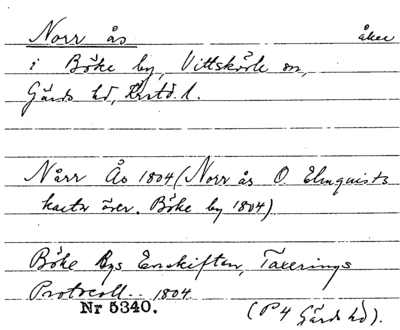 Norr ås åker
i Böke by, Vittskövle sn,
Gärds hd, Krstd. l.
Nårr Ås 1804 (Norr ås O. Elmquists
karta över. Böke by 1804).
Böke Bys Enskiften, Taxerings
Protocoll.. 1804
Nr 5340. (P 4 Gärds hd).